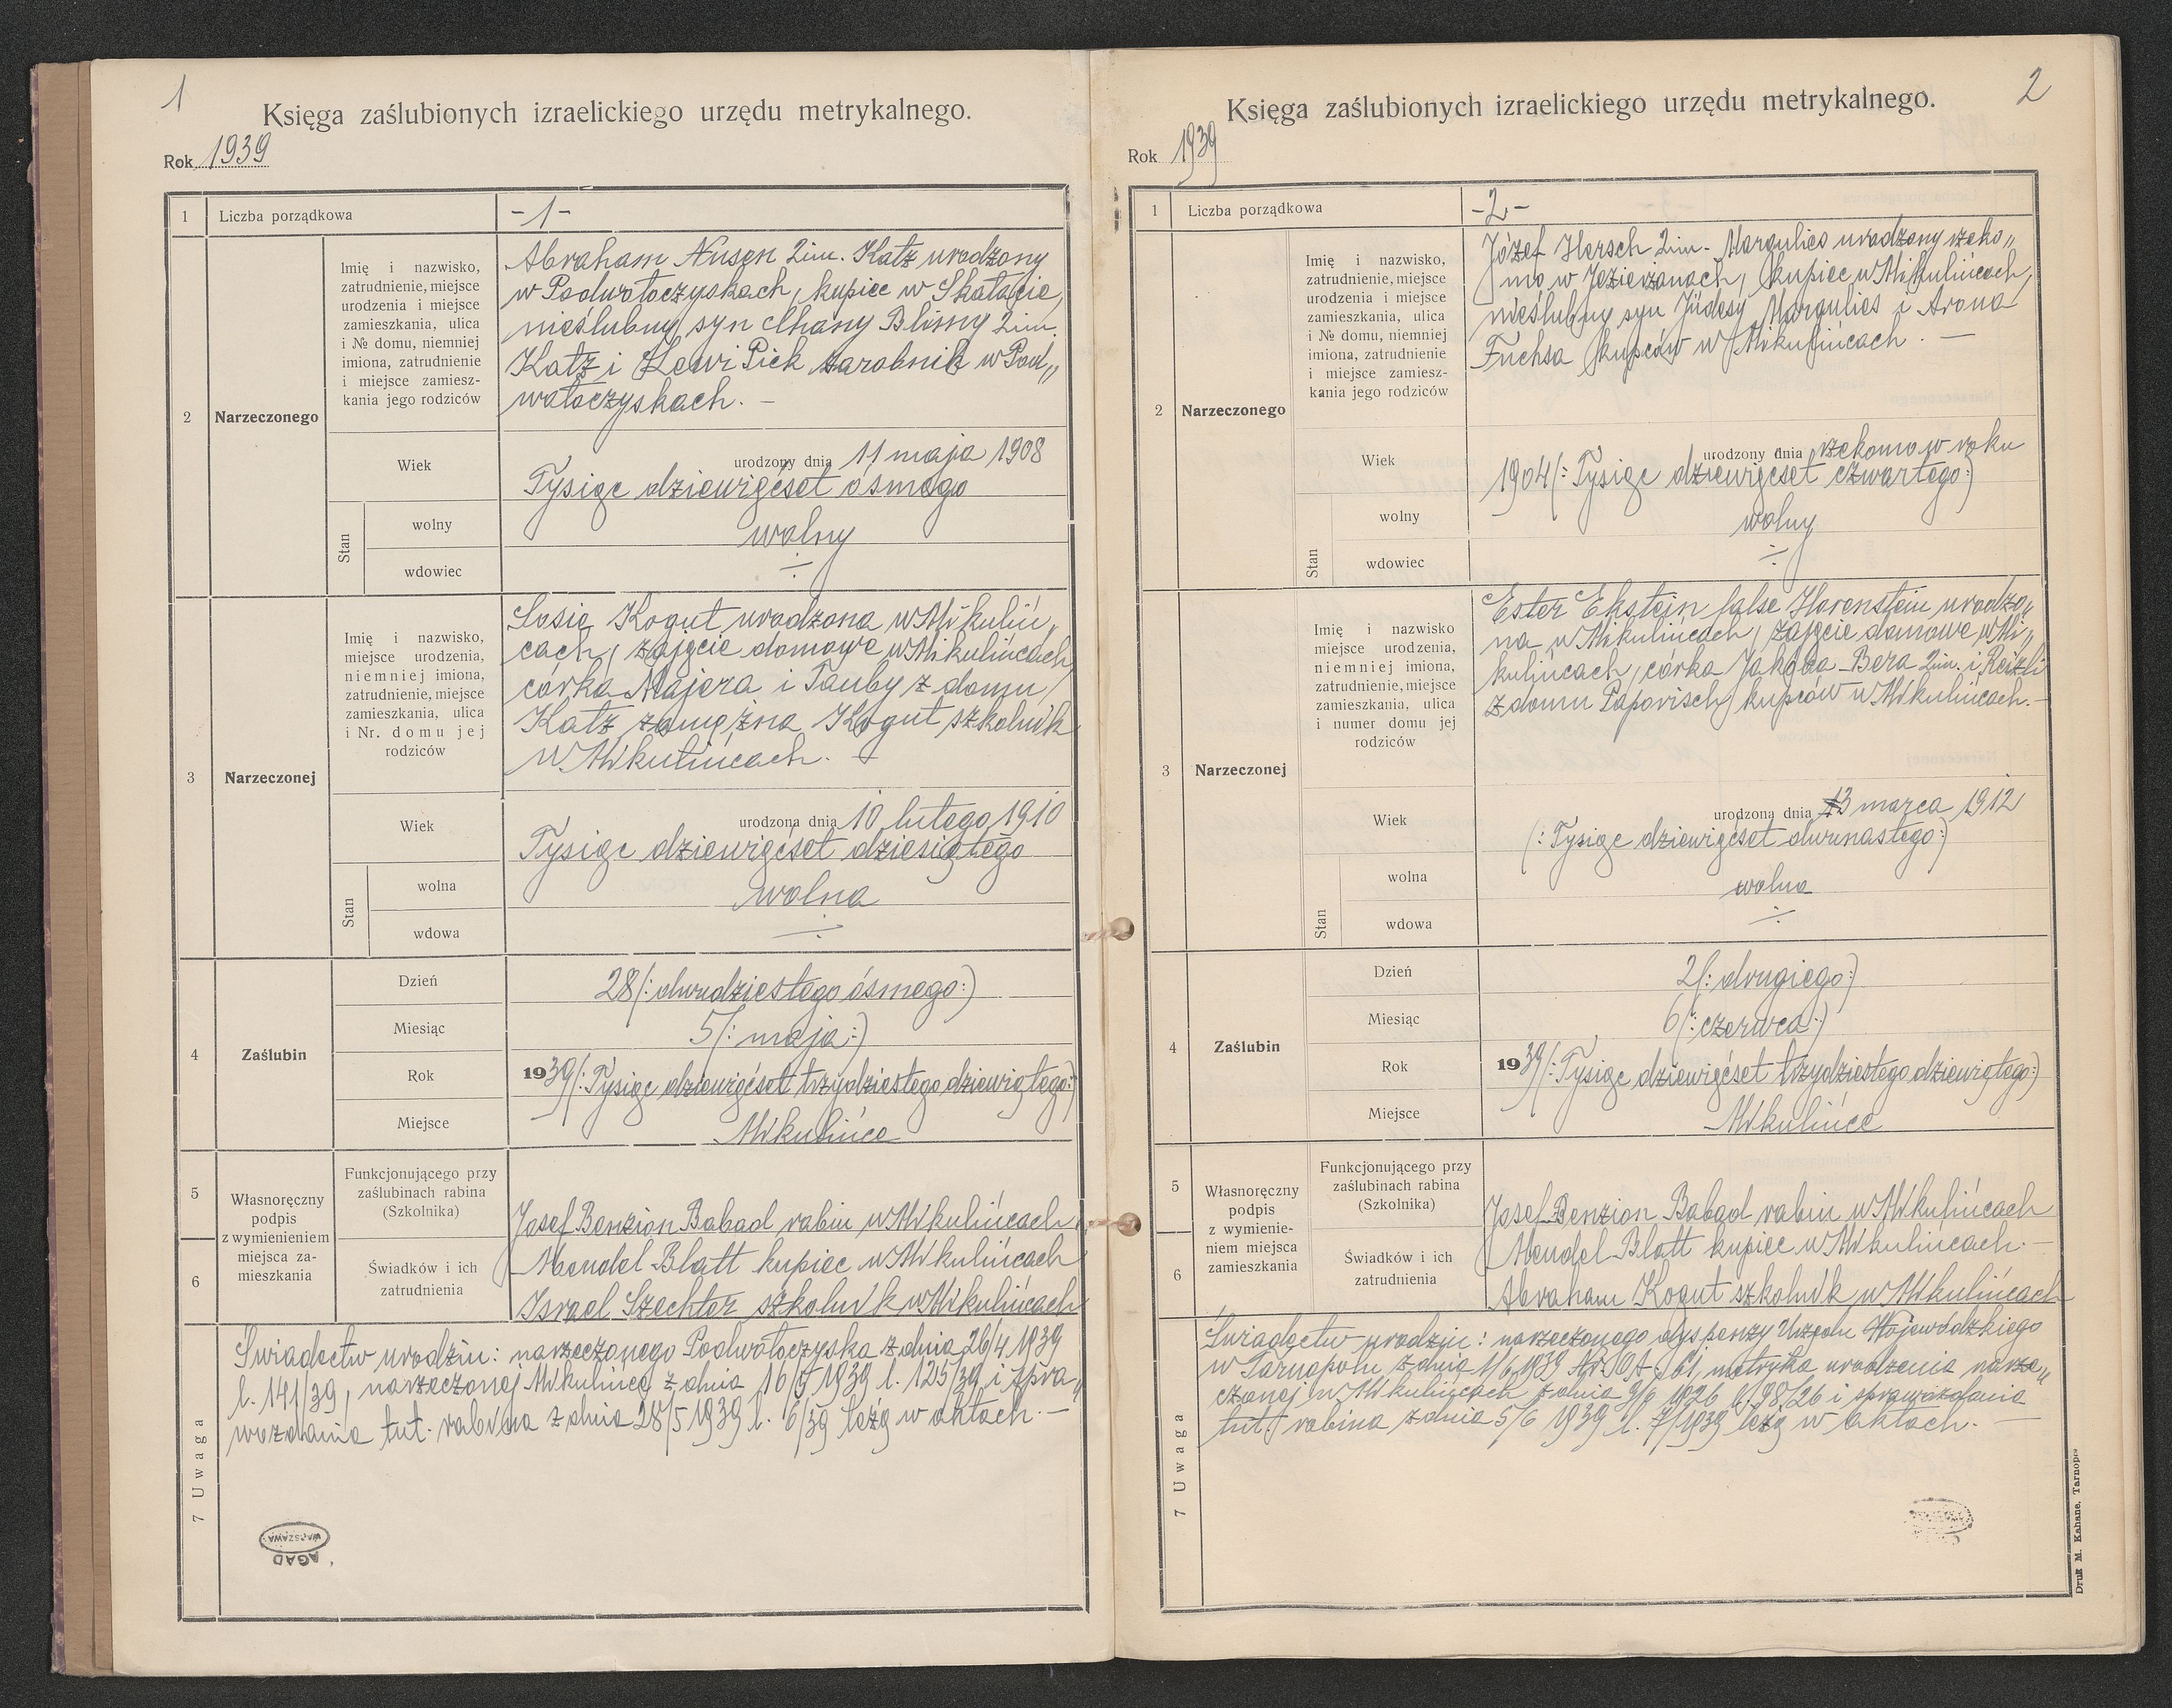 1
Księga zaślubionych izraelickiego urzędu metrykalnego.
Rok 1939
1 Liczba porządkowa -1-
2 Narzeczonego
Imię i nazwisko,
zatrudnienie, miejsce
urodzenia i miejsce
zamieszkania, ulica
i № domu, niemniej
imiona, zatrudnienie
i miejsce zamiesz-
kania jego rodziców
Abraham Nusen 2im. Katz urodzony
w Podwołoczyskach, kupiec w Skałacie,
nieślubny syn Chany Blimy 2im.
Katz i Lewi Pick zarobnik w Pod„
wołoczyskach. —
Wiek urodzony dnia 11 maja 1908
Tysiąc dziewięćset ósmego
Stan
wolny wolny
wdowiec
3 Narzeczonej
Imię i nazwisko,
miejsce urodzenia,
niemniej imiona,
zatrudnienie, miejsce
zamieszkania, ulica
i Nr. domu jej
rodziców
Sosie Kogut urodzona w Mikuliń„
cach, zajęcie domowe w Mikulińcach,
córka Majera i Tauby z domu
Katz zamężna Kogut szkolnik
w Mikulińcach. —
Wiek urodzona dnia 10 lutego 1910
Tysiąc dziewięćset dziesiątego
Stan
wolna wolna
wdowa
4 Zaślubin
Dzień 28(: dwudziestego ósmego:)
Miesiąc 5(: maja:)
Rok 1939(: Tysiąc dziewięćset trzydziestego dziewiątego:)
Miejsce Mikulińce
5
6
Własnoręczny
podpis
z wymienieniem
miejsca za-
mieszkania
Funkcjonującego przy
zaślubinach rabina
(Szkolnika)
Josef Benzion Babad rabin w Mikulińcach
Świadków i ich
zatrudnienia
Mendel Blatt kupiec w Mikulińcach
Israel Szechter szkolnik w Mikulińcach
7 Uwaga
Świadectw urodzin: narzeczonego Podwołoczyska z dnia 26/4 1939
l. 141/39, narzeczonej Mikulińce z dnia 16/5 1939 l. 125/39 i spra„
wozdania tut. rabina z dnia 28/5 1939 l. 6/39 leżą w aktach. —
AGAD
WARSZAWA
2
Księga zaślubionych izraelickiego urzędu metrykalnego.
Rok 1939
1 Liczba porządkowa -2-
2 Narzeczonego
Imię i nazwisko,
zatrudnienie, miejsce
urodzenia i miejsce
zamieszkania, ulica
i № domu, niemniej
imiona, zatrudnienie
i miejsce zamiesz-
kania jego rodziców
Józef Hersch 2im. Margulies urodzony rzeko„
mo w Jezierzanach, kupiec w Mikulińcach,
nieślubny syn Jüdesy Margulies i Arona
Fuchsa kupców w Mikulińcach. —
Wiek urodzony dnia rzekomo w roku
1904(: Tysiąc dziewięćset czwartego:)
Stan
wolny wolny
wdowiec
3 Narzeczonej
Imię i nazwisko
miejsce urodzenia,
niemniej imiona,
zatrudnienie, miejsce
zamieszkania, ulica
i numer domu jej
rodziców
Ester Ekstein false Horenstein urodzo„
na w Mikulińcach, zajęcie domowe w Mi„
kulińcach, córka Jakóba-Bera 2im. i Reizli
z domu Paporisch kupców w Mikulińcach. —
Wiek urodzona dnia 13 marca 1912
(: Tysiąc dziewięćset dwunastego:)
Stan
wolna wolna
wdowa
4 Zaślubin
Dzień 2(: drugiego:)
Miesiąc 6(: czerwca:)
Rok 1939(: Tysiąc dziewięćset trzydziestego dziewiątego:)
Miejsce Mikulińce
5
6
Własnoręczny
podpis
z wymienie-
niem miejsca
zamieszkania
Funkcjonującego przy
zaślubinach rabina
(Szkolnika)
Josef Benzion Babad rabin w Mikulińcach
Świadków i ich
zatrudnienia
Mendel Blatt kupiec w Mikulińcach. —
Abraham Kogut szkolnik w Mikulińcach
7 Uwaga
Świadectw urodzin: narzeczonego dyspenzy Urzędu Wojewódzkiego
w Tarnopolu z dnia 1/6 1939 metryka urodzenia narze„
czonej w Mikulińcach z dnia 9/6 1926 l. 98/26 i sprawozdania
tut. rabina z dnia 5/6 1939 l. 7/1939 leżą w aktach. —
Druk M. Kahane, Tarnopol